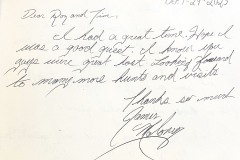 Oct-29-2023
Dear Roy and Fran,
I had a great time. Hope I
was a good guest. I know you
guys were great host. Looking forward
to many more hunts and visits
Thanks so much
James